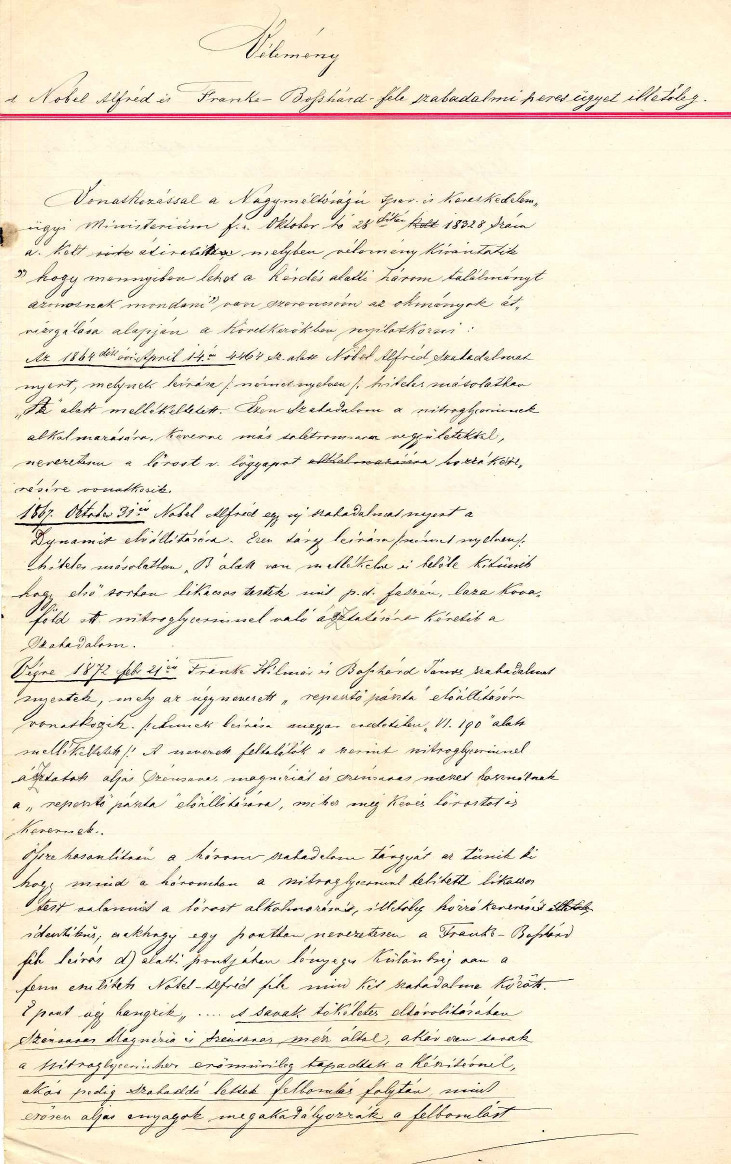 Vélemény
a Nobel Alfréd és Franke-Boßhárd-féle szabadalmi peres ügyet illetőleg.
Vonatkozással a Nagyméltóságú ipar. és Kereskedelem,
ügyi Ministerium f. é. Oktober hó 28 kelt 18328 szám
a. kelt átiratára melyben vélemény kívántatik
"hogy mennyiben lehet a kérdés alatti három találmányt
azonosnak mondani" van szerencsém az okmányok át,
vizsgálása alapján a következőkben nyilatkozni:
Az 1864 dik évi April 14. én 4464 sz. alatt Nobel Alfréd szabadalmat
nyert, melynek leírása /:német nyelven:/ hiteles másolatban
"A" alatt mellékeltetett. Ezen szabadalom a nitroglycerinnek
alkalmazására, keverve más salétromsavas vegyületekkel,
nevezetesen a lőport v. lőgyapot alkalmazására hozzákeve,
résére vonatkozik.
1867. Oktober 31 én Nobel Alfréd egy új szabadalmat nyert a
Dynamit előállítására. Ezen tárgy leírása /:német nyelven:/
hiteles másolatban "B" alatt van mellékelve és belőle kitűnik
hogy első sorban likacsos testek mit p.d. faszén, laza kova,
föld stt. nitroglycerinnel való áztatására kéretik a
szabadalom.
Végre 1872 febr 21 én Franke Hilmér és Boßhárd János szabadalmat
nyertek, mely az úgynevezett "repesztő pászta" előállítására
vonatkozik. /:Annak leírása magyar eredetiben "VI. 190" alatt
mellékeltetett:/ A nevezett feltalálók e szerint nitroglycerinnel
áztatott aljas szénsavas magnéziát és szénsavas meszet használnak
a "repesztő pászta" előállítására, mihez még kevés lőrostot is
kevernek.
Összehasonlítván a három szabadalom tárgyát az tűnik ki
hogy mind a háromban a nitroglycerinnel telített likacsos
test valamint a lőrost alkalmazása, illetőleg hozzákeverése
identikus, csakhogy egy pontban nevezetesen a Franke-Boßhárd
féle leírás d) alatti pontjában lényeges különbség van a
fenn említett Nobel-Alfréd féle mind két szabadalma között.
E pont úgy hangzik ".... A savak tökéletes eltávolításában
Szénsavas Magnézia és Szénsavas mész által, akár ezen savak
a nitroglycerinhez erőművileg tapadtak a készítésnél,
akár pedig szabaddá lettek felbomlás folytán mint
erősen aljas anyagok megakadályozzák a felbomlást